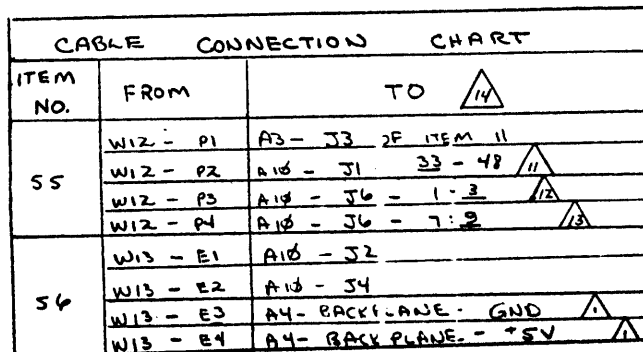 CABLE CONNECTION CHART
ITEM NO. FROM TO 14
55 W12 - P1 A3 - J3 2F ITEM 11
W12 - P2 A1Ø - J1 33 - 48 11
W12 - P3 A1Ø - J6 - 1 - 3 12
W12 - P4 A1Ø - J6 - 7 : 9 13
56 W13 - E1 A1Ø - J2
W13 - E2 A1Ø - J4
W13 - E3 A4 - BACKPLANE - GND 1
W13 - E4 A4 - BACKPLANE - +5V 1